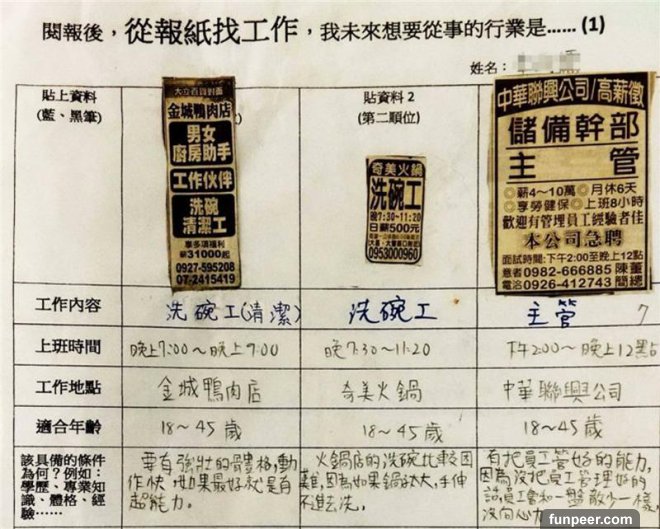 閱報後，從報紙找工作，我未來想要從事的行業是……(1)
姓名：
貼上資料
(藍、黑筆)
貼資料 2
(第二順位)
大立百貨對面
金城鴨肉店
男女
廚房助手
工作伙伴
洗碗
清潔工
享多項福利
薪31000起
0927-595208
07-2415419
奇美火鍋
洗碗工
晚7:30-11:20
日薪500元
0953000960
中華聯興公司/高薪徵
儲備幹部
主管
◎薪4～10萬◎月休6天
◎享勞健保◎上班8小時
歡迎有管理員工經驗者佳
本公司急聘
面試時間:下午2:00至晚上12點
意者0982-666885陳董
電洽0926-412743簡總
工作內容 洗碗工(清潔) 洗碗工 主管 7
上班時間 晚上7:00～晚上9:00 晚7:30～11:20 下午2:00～晚上12點
工作地點 金城鴨肉店 奇美火鍋 中華聯興公司
適合年齡 18～45歲 18～45歲 18～45歲
該具備的條件
為何？例如：
學歷、專業知
識、體格、經
驗……
要有強壯的體格,動
作快,如果最好就是有
超能力。
火鍋店的洗碗比較困
難,因為如果鍋太大,手伸
不進去洗。
有把員工管好的能力,
因為沒把員工管理好的
話,員工會和一盤散沙一樣
沒向心力。
funpeer.com